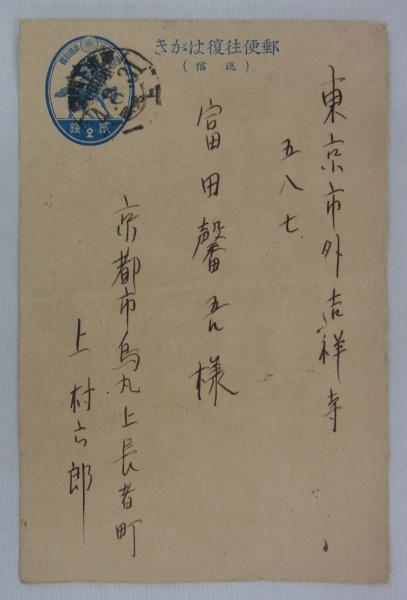 きがは復往便郵
(信返)
錢2貳
東京市外吉祥寺
五八七
富田馨吾様
京都市烏丸上長者町
上村六郎